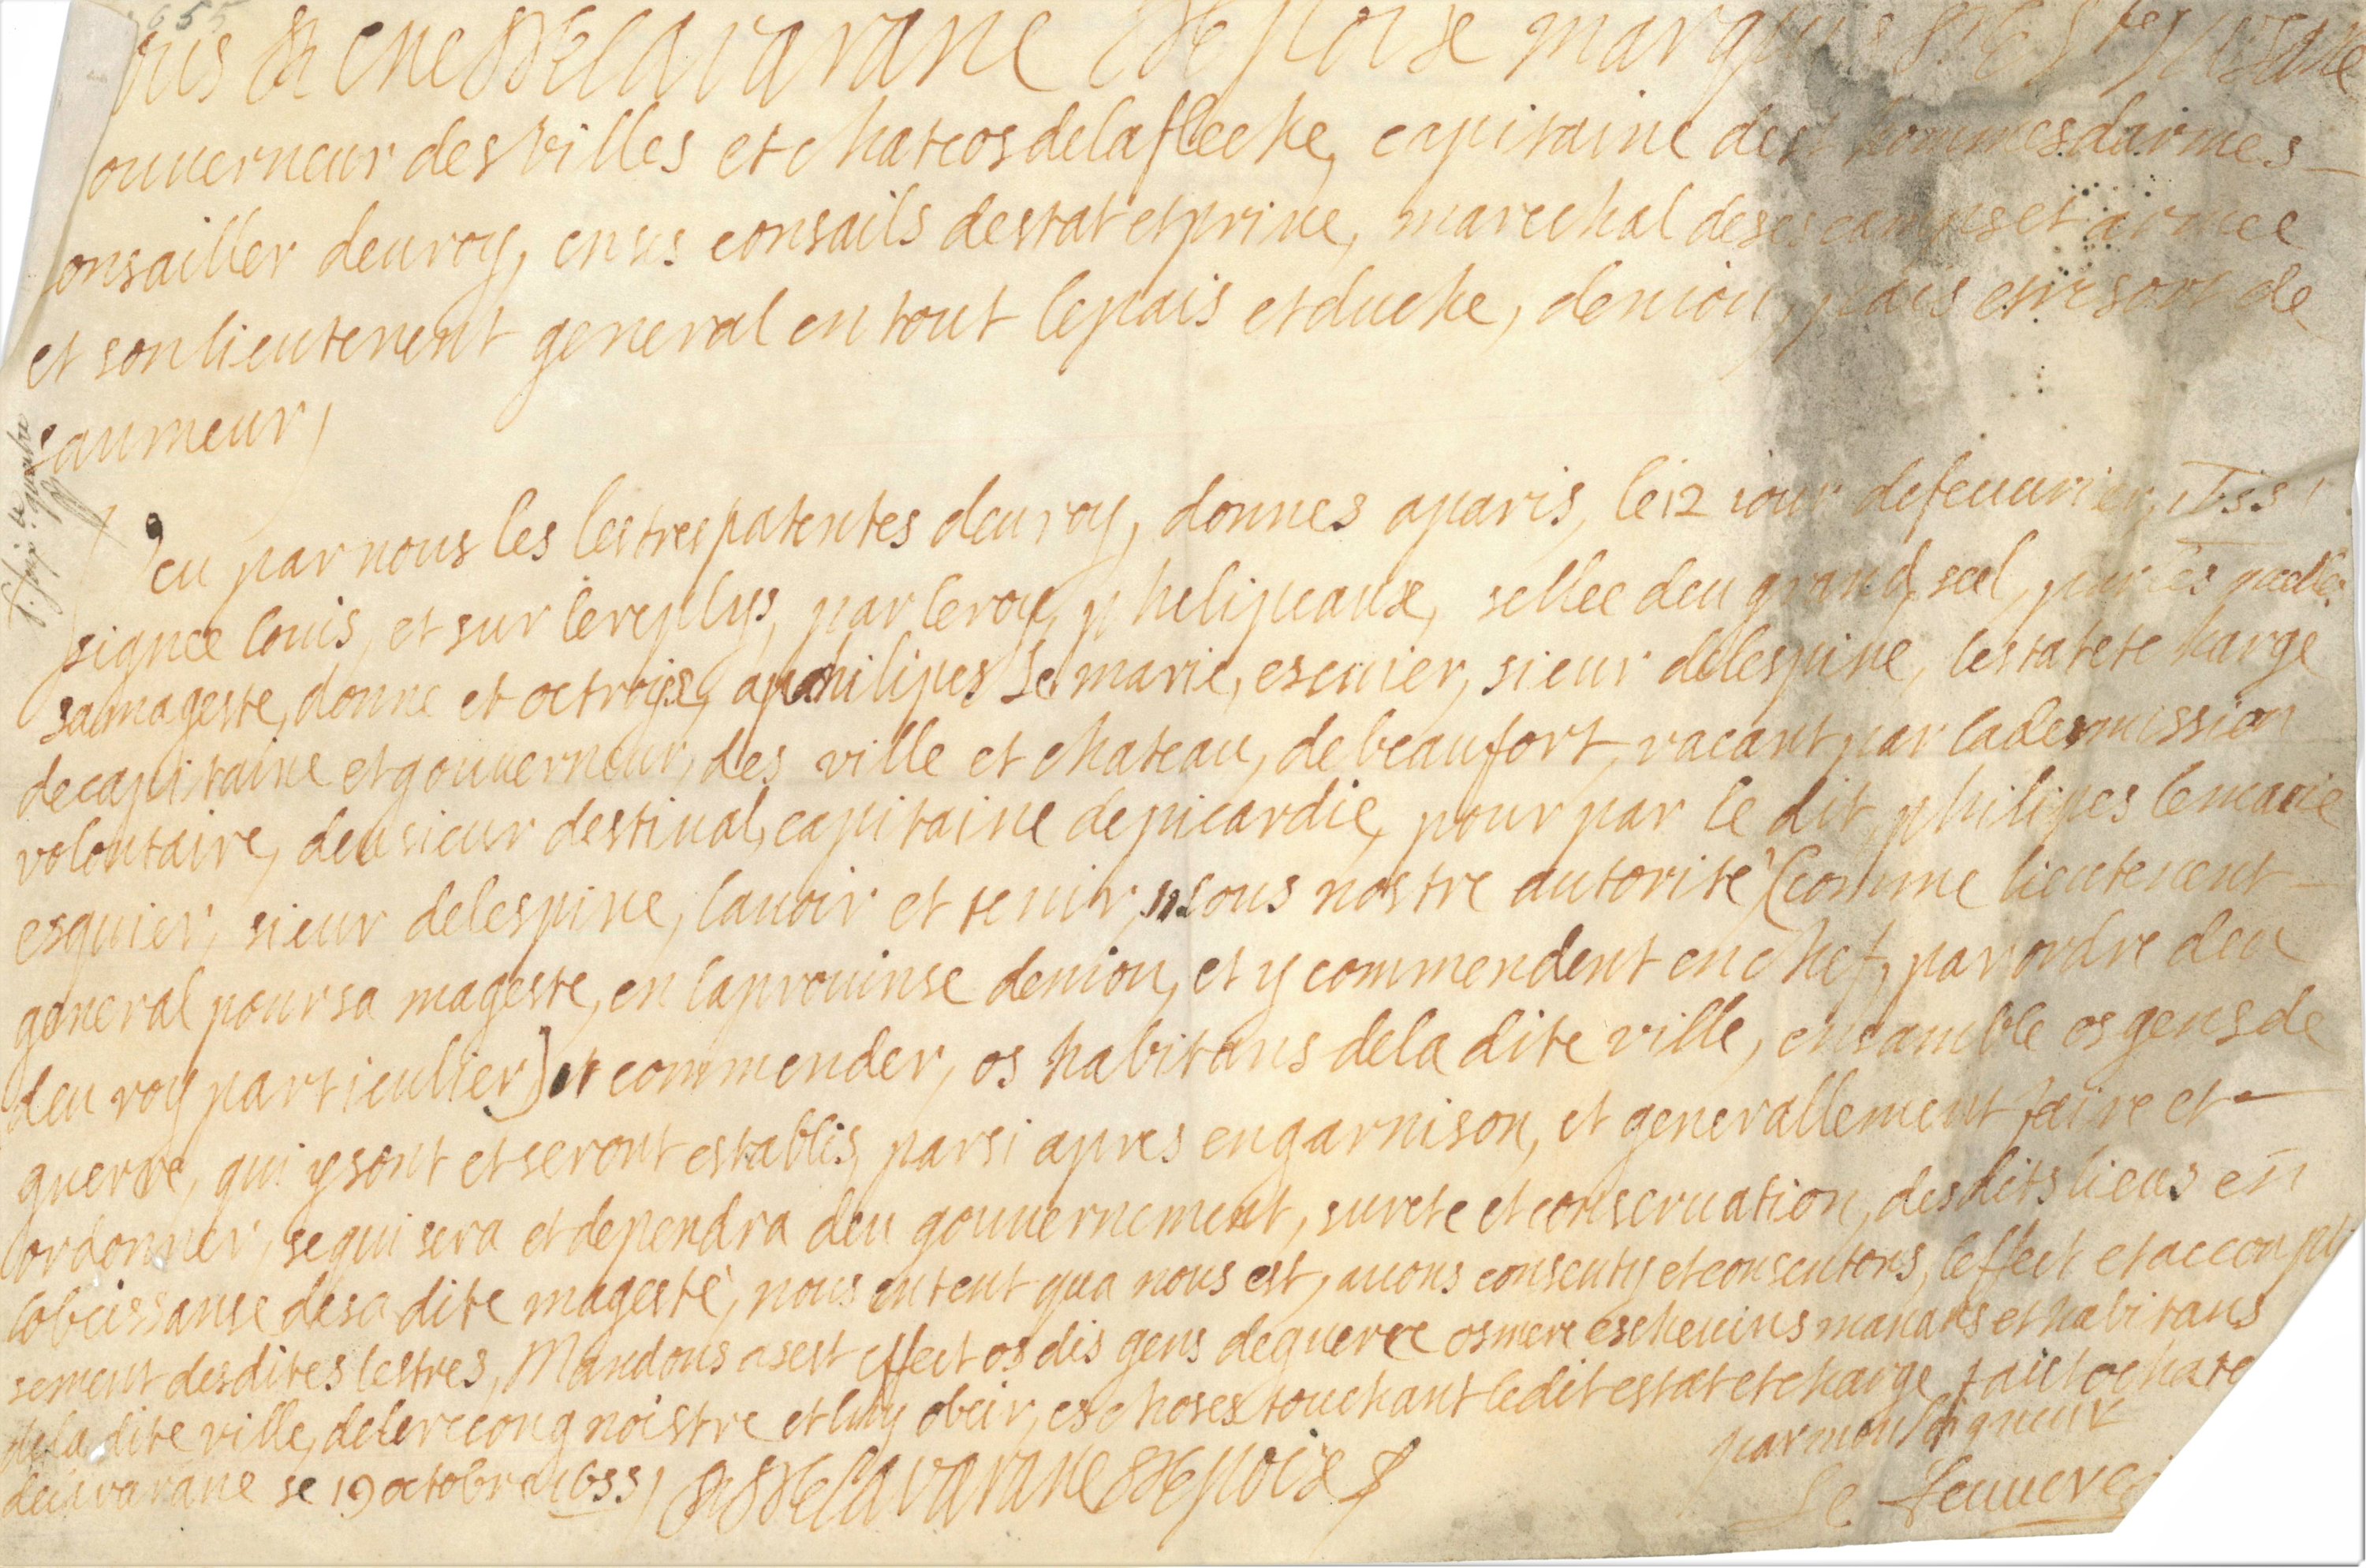 655
ouis Rene DE LA varane DE poix marquis DE Ste susane
ouuerneur des villes et chateos delaflecke, capitaine de hommesdarmes
onsailler deu roy, en ses consails destat et prive, marechal deses camps et armee
et son lieutenent general en tout lepais et duche, deniou, pais et resort de
saumeur,
veu par nous les lestres patentes deu roy, donnes aparis, le 12 iour defeuurier, 1655,
signee louis, et sur lereplys, par leroy, phelipeaux, sellee deu grand seel, par les quelles
samageste, donne et octroye, a philipes le marie, escuier, sieur delespine, lestat et charge
decapitaine et gouuerneur, des ville et chateau, debeaufort, vacant par la demission
volontaire, deu sieur destiual, capitaine depicardie, pour par le dit, philipes lemarie
esquier, sieur delespine, lauoir et tenir, sous nostre autorite (comme lieutenent
general pour sa mageste, en laprouinse deniou, et y commendent en chef, par ordre deu
deu roy particulier) et commender, os habitans dela dite ville, ensamble os gens de
guerre, qui y sont et seront establis, parsi apres engarnison, et generallement faire et
ordonner, sequi sera et dependra deu gouuernement, surete et conseruation, desdits lieus en
lobeissanse desa dite mageste, nous entent qua nous est, auons consenty et consentons, leffect et accompli
sement desdites lestres, Mandons asest effect os dis gens deguerre osmere escheuins manans et habitans
dela dite ville, delerecongnoistre et luy obeir, es choses touchant ledit estat et charge, fait oc hate
deu varane se 19 octobre 1655, R DE LA VARANE DE poix
par mon seigneur